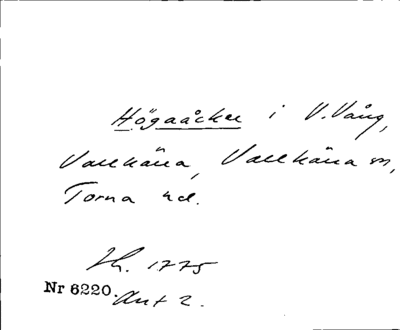 Högaåcker i V. Vång,
Vallkärra, Vallkärra sn,
Torna hd.
Sk. 1775
Nr 6220. Akt 2.